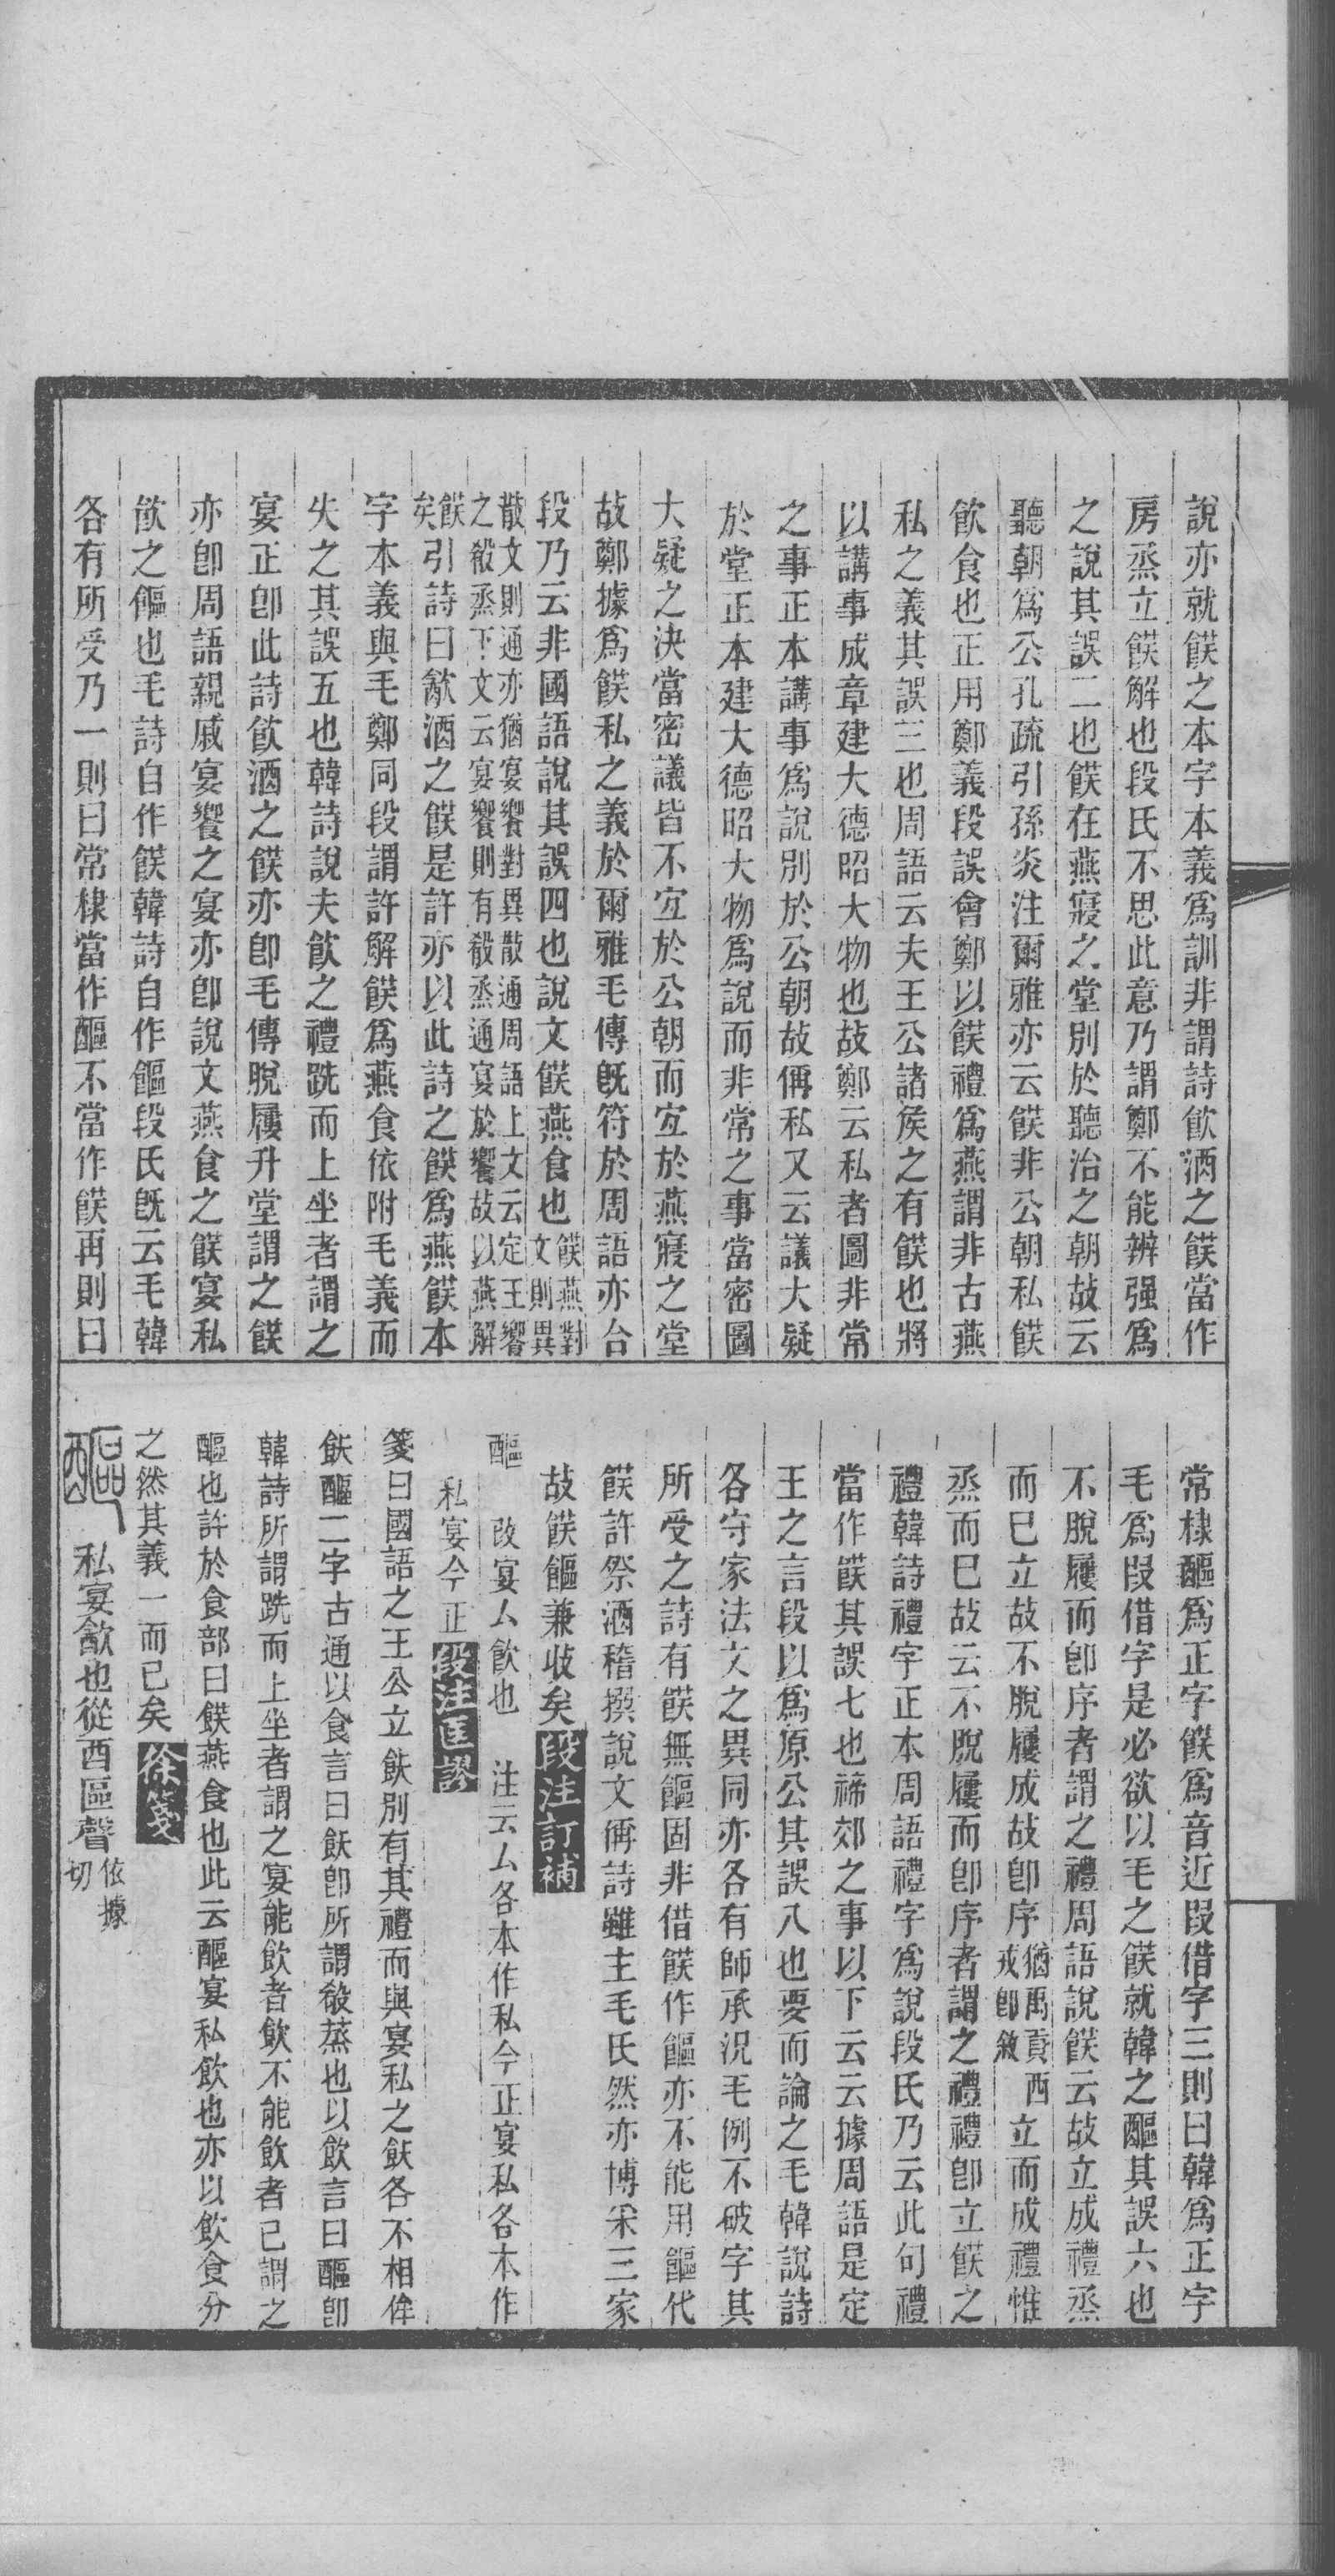 說亦就饇之本字本義為訓非謂詩飲酒之饇當作
房烝立饇解也段氏不思此意乃謂鄭不能辨强為
之說其誤二也饇在燕寢之堂別於聽治之朝故云
聽朝為公孔疏引孫炎注爾雅亦云饇非公朝私饇
飲食也正用鄭義段誤會鄭以饇禮為燕謂非古燕
私之義其誤三也周語云夫王公諸矦之有饇也將
以講事成章建大德昭大物也故鄭云私者圖非常
之事正本講事為說別於公朝故偁私又云議大疑
於堂正本建大德昭大物為說而非常之事當密圖
大疑之決當密議皆不宐於公朝而宐於燕寢之堂
故鄭據為饇私之義於爾雅毛傳旣符於周語亦合
段乃云非國語說其誤四也說文饇燕食也饇燕對文則異
散文則通亦猶宴饗對異散通周語上文云定王饗之殽烝下文云宴饗則有殽烝通宴於饗故以燕解
饇矣引詩曰㱃酒之饇是許亦以此詩之饇為燕饇本
字本義與毛鄭同段謂許解饇為燕食依附毛義而
失之其誤五也韓詩說夫飲之禮跣而上坐者謂之
宴正卽此詩飲酒之饇亦卽毛傳脫屨升堂謂之饇
亦卽周語親戚宴饗之宴亦卽說文燕食之饇宴私
飲之饇也毛詩自作饇韓詩自作饇段氏旣云毛韓
各有所受乃一則曰常棣當作醧不當作饇再則曰
常棣醧為正字饇為音近叚借字三則曰韓為正字
毛為叚借字是必欲以毛之饇就韓之醧其誤六也
不脫屨而卽序者謂之禮周語說饇云故立成禮烝
而已立故不脫屨成故卽序猶禹貢西戎卽敘立而成禮惟
烝而已故云不脫屨而卽序者謂之禮禮卽立饇之
禮韓詩禮字正本周語禮字為說段氏乃云此句禮
當作饇其誤七也禘郊之事以下云云據周語是定
王之言段以為原公其誤八也要而論之毛韓說詩
各守家法文之異同亦各有師承況毛例不破字其
所受之詩有饇無饇固非借饇作饇亦不能用饇代
饇許祭酒稽譔說文偁詩雖主毛氏然亦博采三家
故饇饇兼收矣段注訂補
醧 改宴厶飲也 注云厶各本作私今正宴私各本作
私宴今正段注匡謬
箋曰國語之王公立飫別有其禮而與宴私之飫各不相侔
飫醧二字古通以食言曰飫卽所謂殽蒸也以飲言曰醧卽
韓詩所謂跣而上坐者謂之宴能飲者飲不能飲者已謂之
醧也許於食部曰饇燕食也此云醧宴私飲也亦以飲食分
之然其義一而已矣徐箋
醧 私宴㱃也從酉區聲依據切